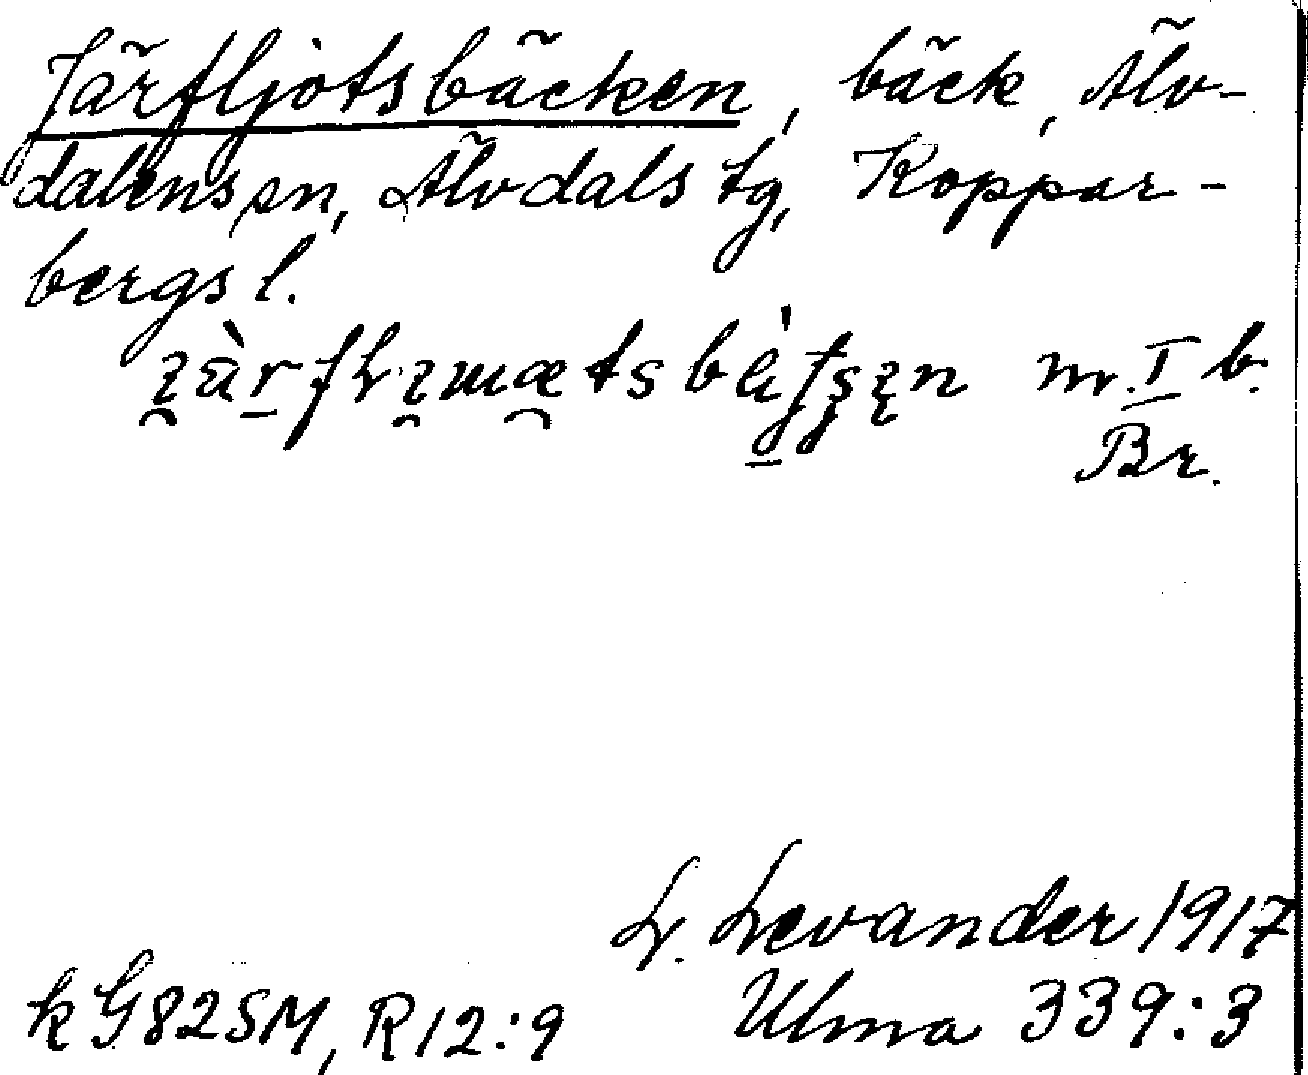 Järfljotsbäcken, bäck, Älv-
dalens sn, Älvdals tg, Koppar-
bergs l.
m. I b.
Br.
L. Levander 1917
kG82SM, R12:9 Ulma 339:3